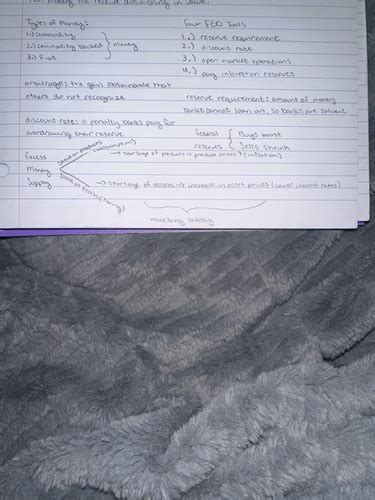 money the receive diminishing in value.
Types of Money:
1.) commodity
2.) commodity backed } money
3.) fiat
Four FED Tools
1.) reserve requirement
2.) discount rate
3.) open market operations
4.) pay interest on reserves
arbitrage: the gain obtainable that
others do not recognize
reserve requirement: amount of money
banks cannot loan out, so banks are solvent
discount rate: a penalty banks pay for
overdrawing their reserve
Federal { Buys boost
reserves { Sells shrink
Excess
Money
Supply
(consumption)
→ shortage of products → product prices ↑ (inflation)
→ shortage of assets → increase in asset prices (lower interest rates)
monetary theory